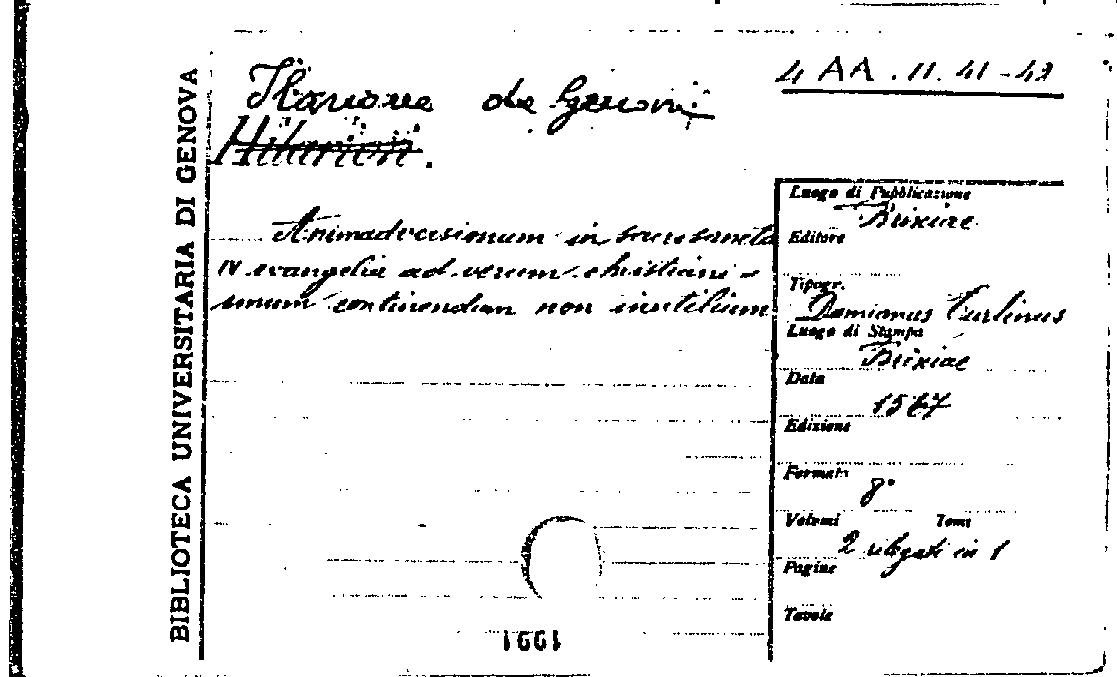 BIBLIOTECA UNIVERSITARIA DI GENOVA
4 AA. 11. 41-42
Ilarione da Genova
Hilarion.
Animadversionum in sacrosancta
IV evangelia ad verum christiani-
smum continendam non inutilium
Luogo di Pubblicazione
Brixiae
Editore
Tipogr.
Damianus Turlinus
Luogo di Stampa
Brixiae
Data
1567
Edizione
Formato
8°
Volumi Tomi
2 rilegati in 1
Pagine
Tavole
1991